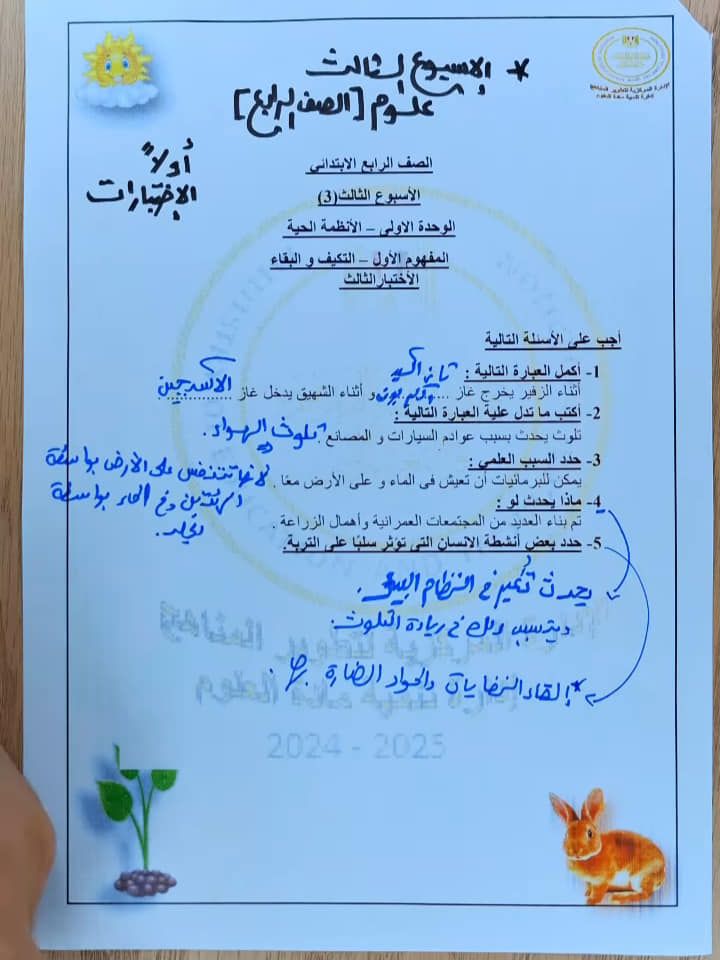 * الإسبوع الثالث
علوم [الصف الرابع]
أولاً
الإختبارات
الصف الرابع الابتدائي
الأسبوع الثالث(3)
الوحدة الاولى – الأنظمة الحية
المفهوم الأول – التكيف و البقاء
الأختبار الثالث
أجب على الأسئلة التالية
1- أكمل العبارة التالية :
أثناء الزفير يخرج غاز .... ثاني أكسيد الكربون و أثناء الشهيق يدخل غاز الاكسجين
2- أكتب ما تدل علية العبارة التالية :
تلوث يحدث بسبب عوادم السيارات و المصانع. تلوث الهواء.
3- حدد السبب العلمي :
يمكن للبرمائيات أن تعيش فى الماء و على الأرض معًا.
لانها تتنفس على الأرض بواسطة
الرئتين وفي الماء بواسطة
الجلد.
4- ماذا يحدث لو :
تم بناء العديد من المجتمعات العمرانية وأهمال الزراعة .
5- حدد بعض أنشطة الانسان التى تؤثر سلبًا على التربة.
يحدث تغير في النظام البيئي.
ويتسبب ذلك في زيادة التلوث.
* إلقاء النفايات والمواد الضارة بها.
2024 - 2025